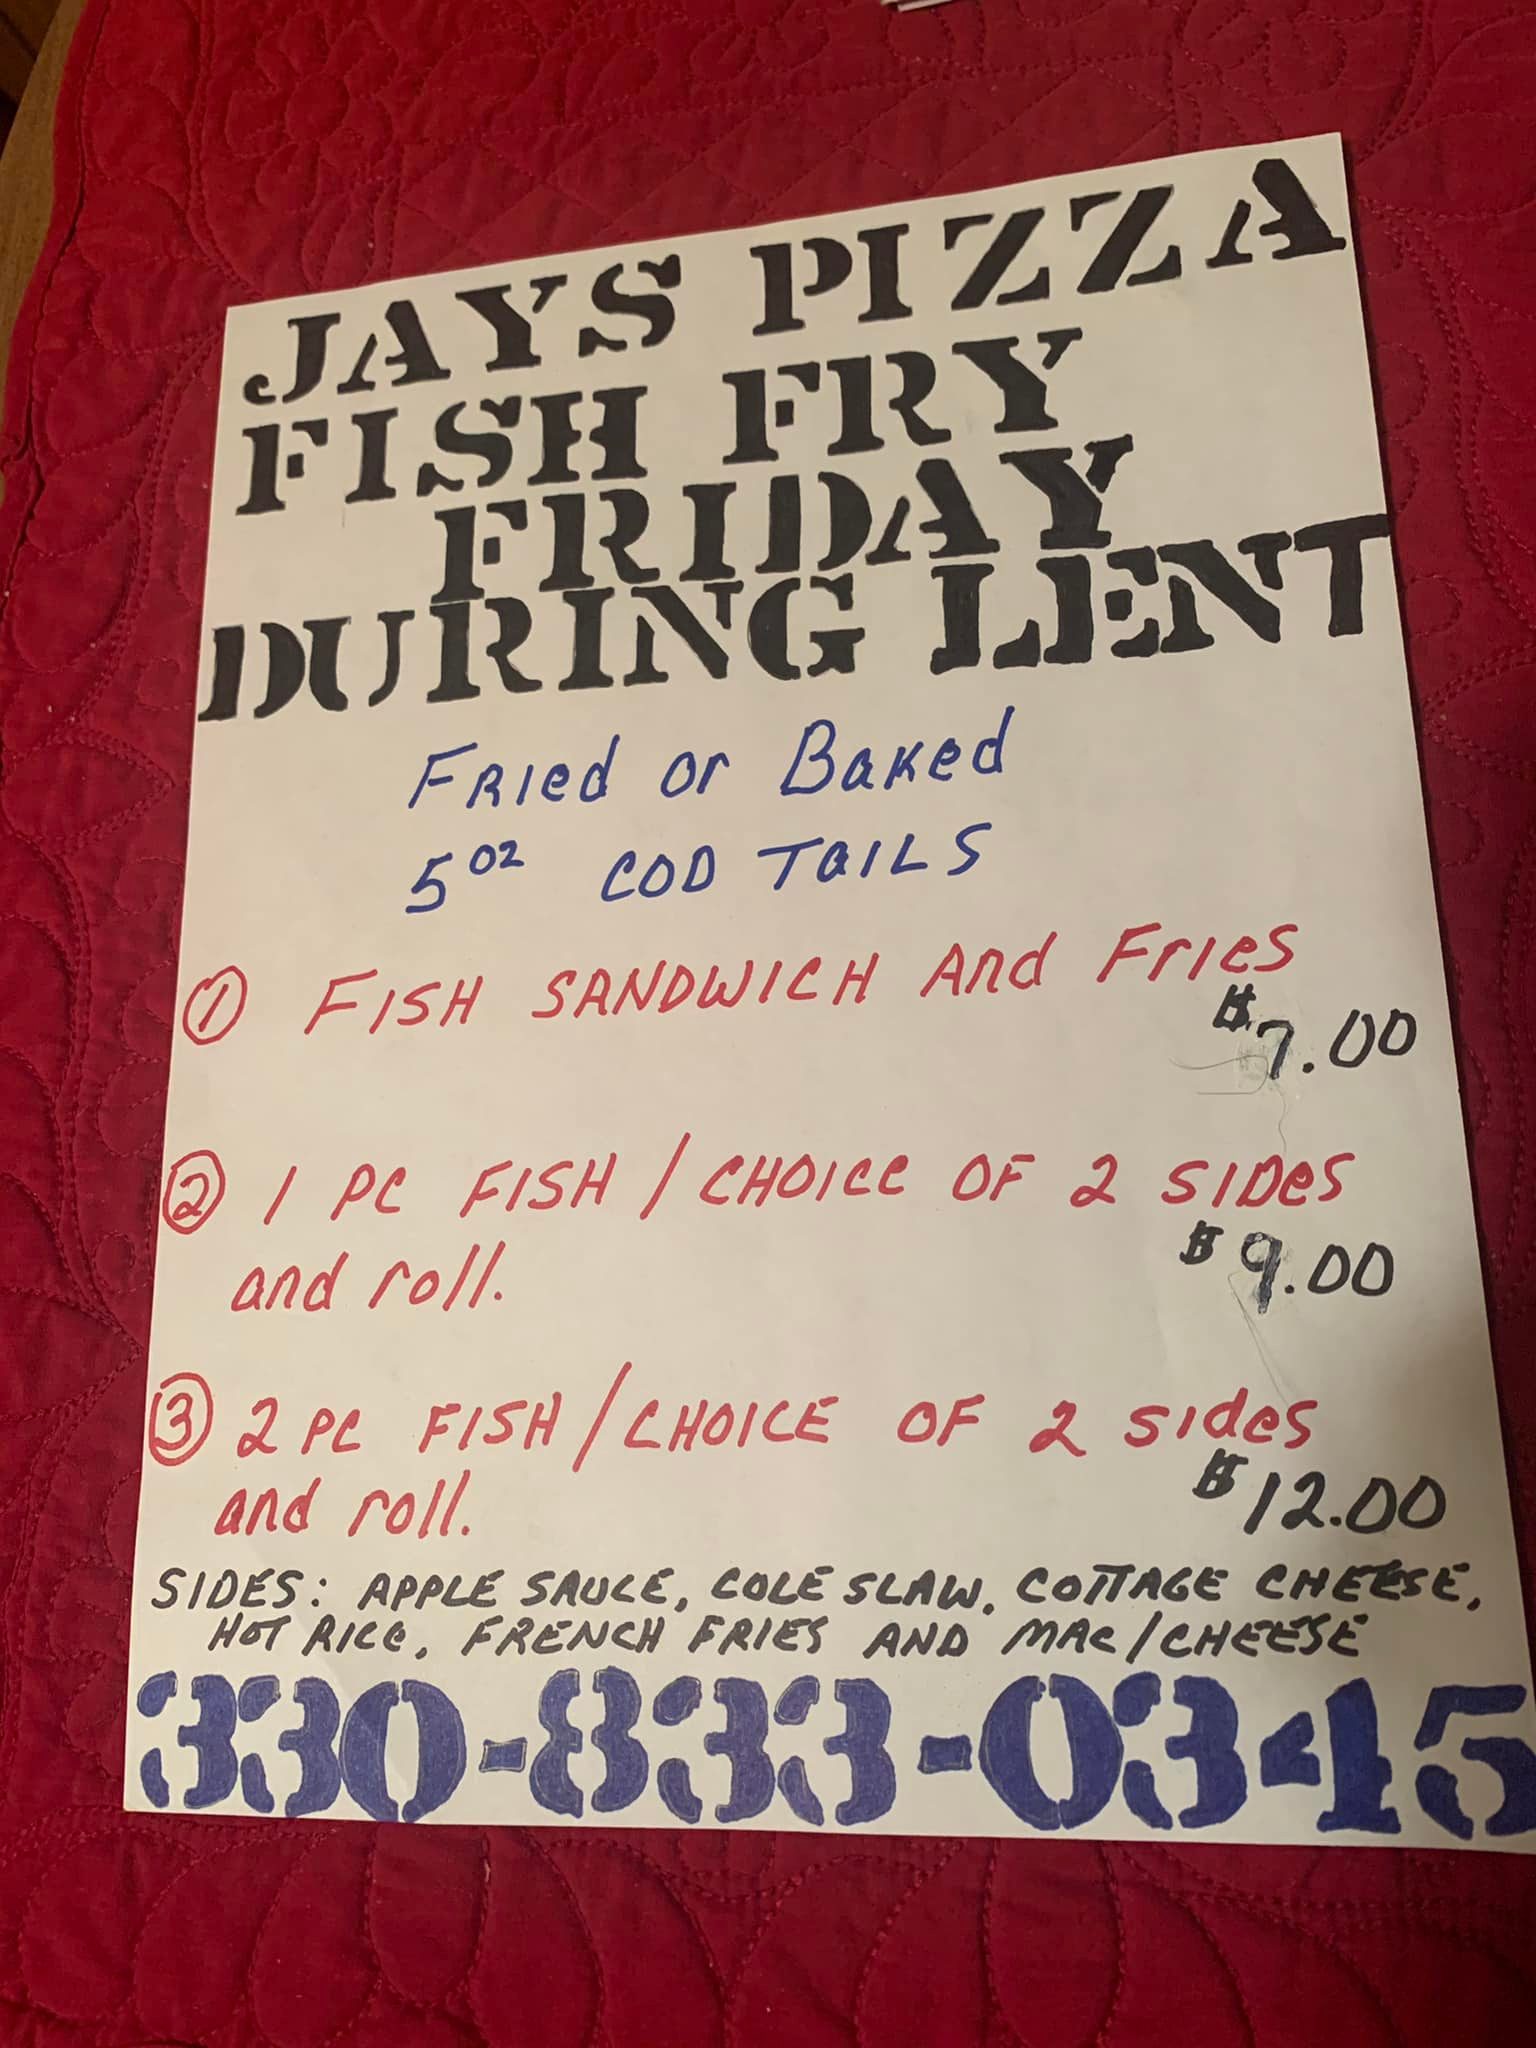 JAYS PIZZA
FISH FRY
FRIDAY
DURING LENT
Fried or Baked
5 oz COD TAILS
① FISH SANDWICH And Fries
$7.00
② 1 PC FISH / CHOICE OF 2 SIDes
and roll.
$9.00
③ 2 PC FISH / CHOICE OF 2 sides
and roll.
$12.00
SIDES: APPLE SAUCE, COLE SLAW, COTTAGE CHEESE,
HOT RICE, FRENCH FRIES AND MAC/CHEESE
330-833-0345